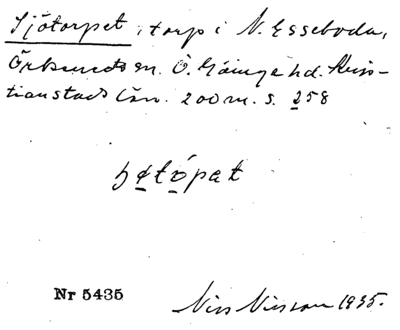 Sjötorpet, torp i N. Esseboda,
Örkeneds sn. Ö. Göinge hd. Kris-
tianstads län. 200 m. s. 258
Nr 5435
Nils Nilsson 1935.